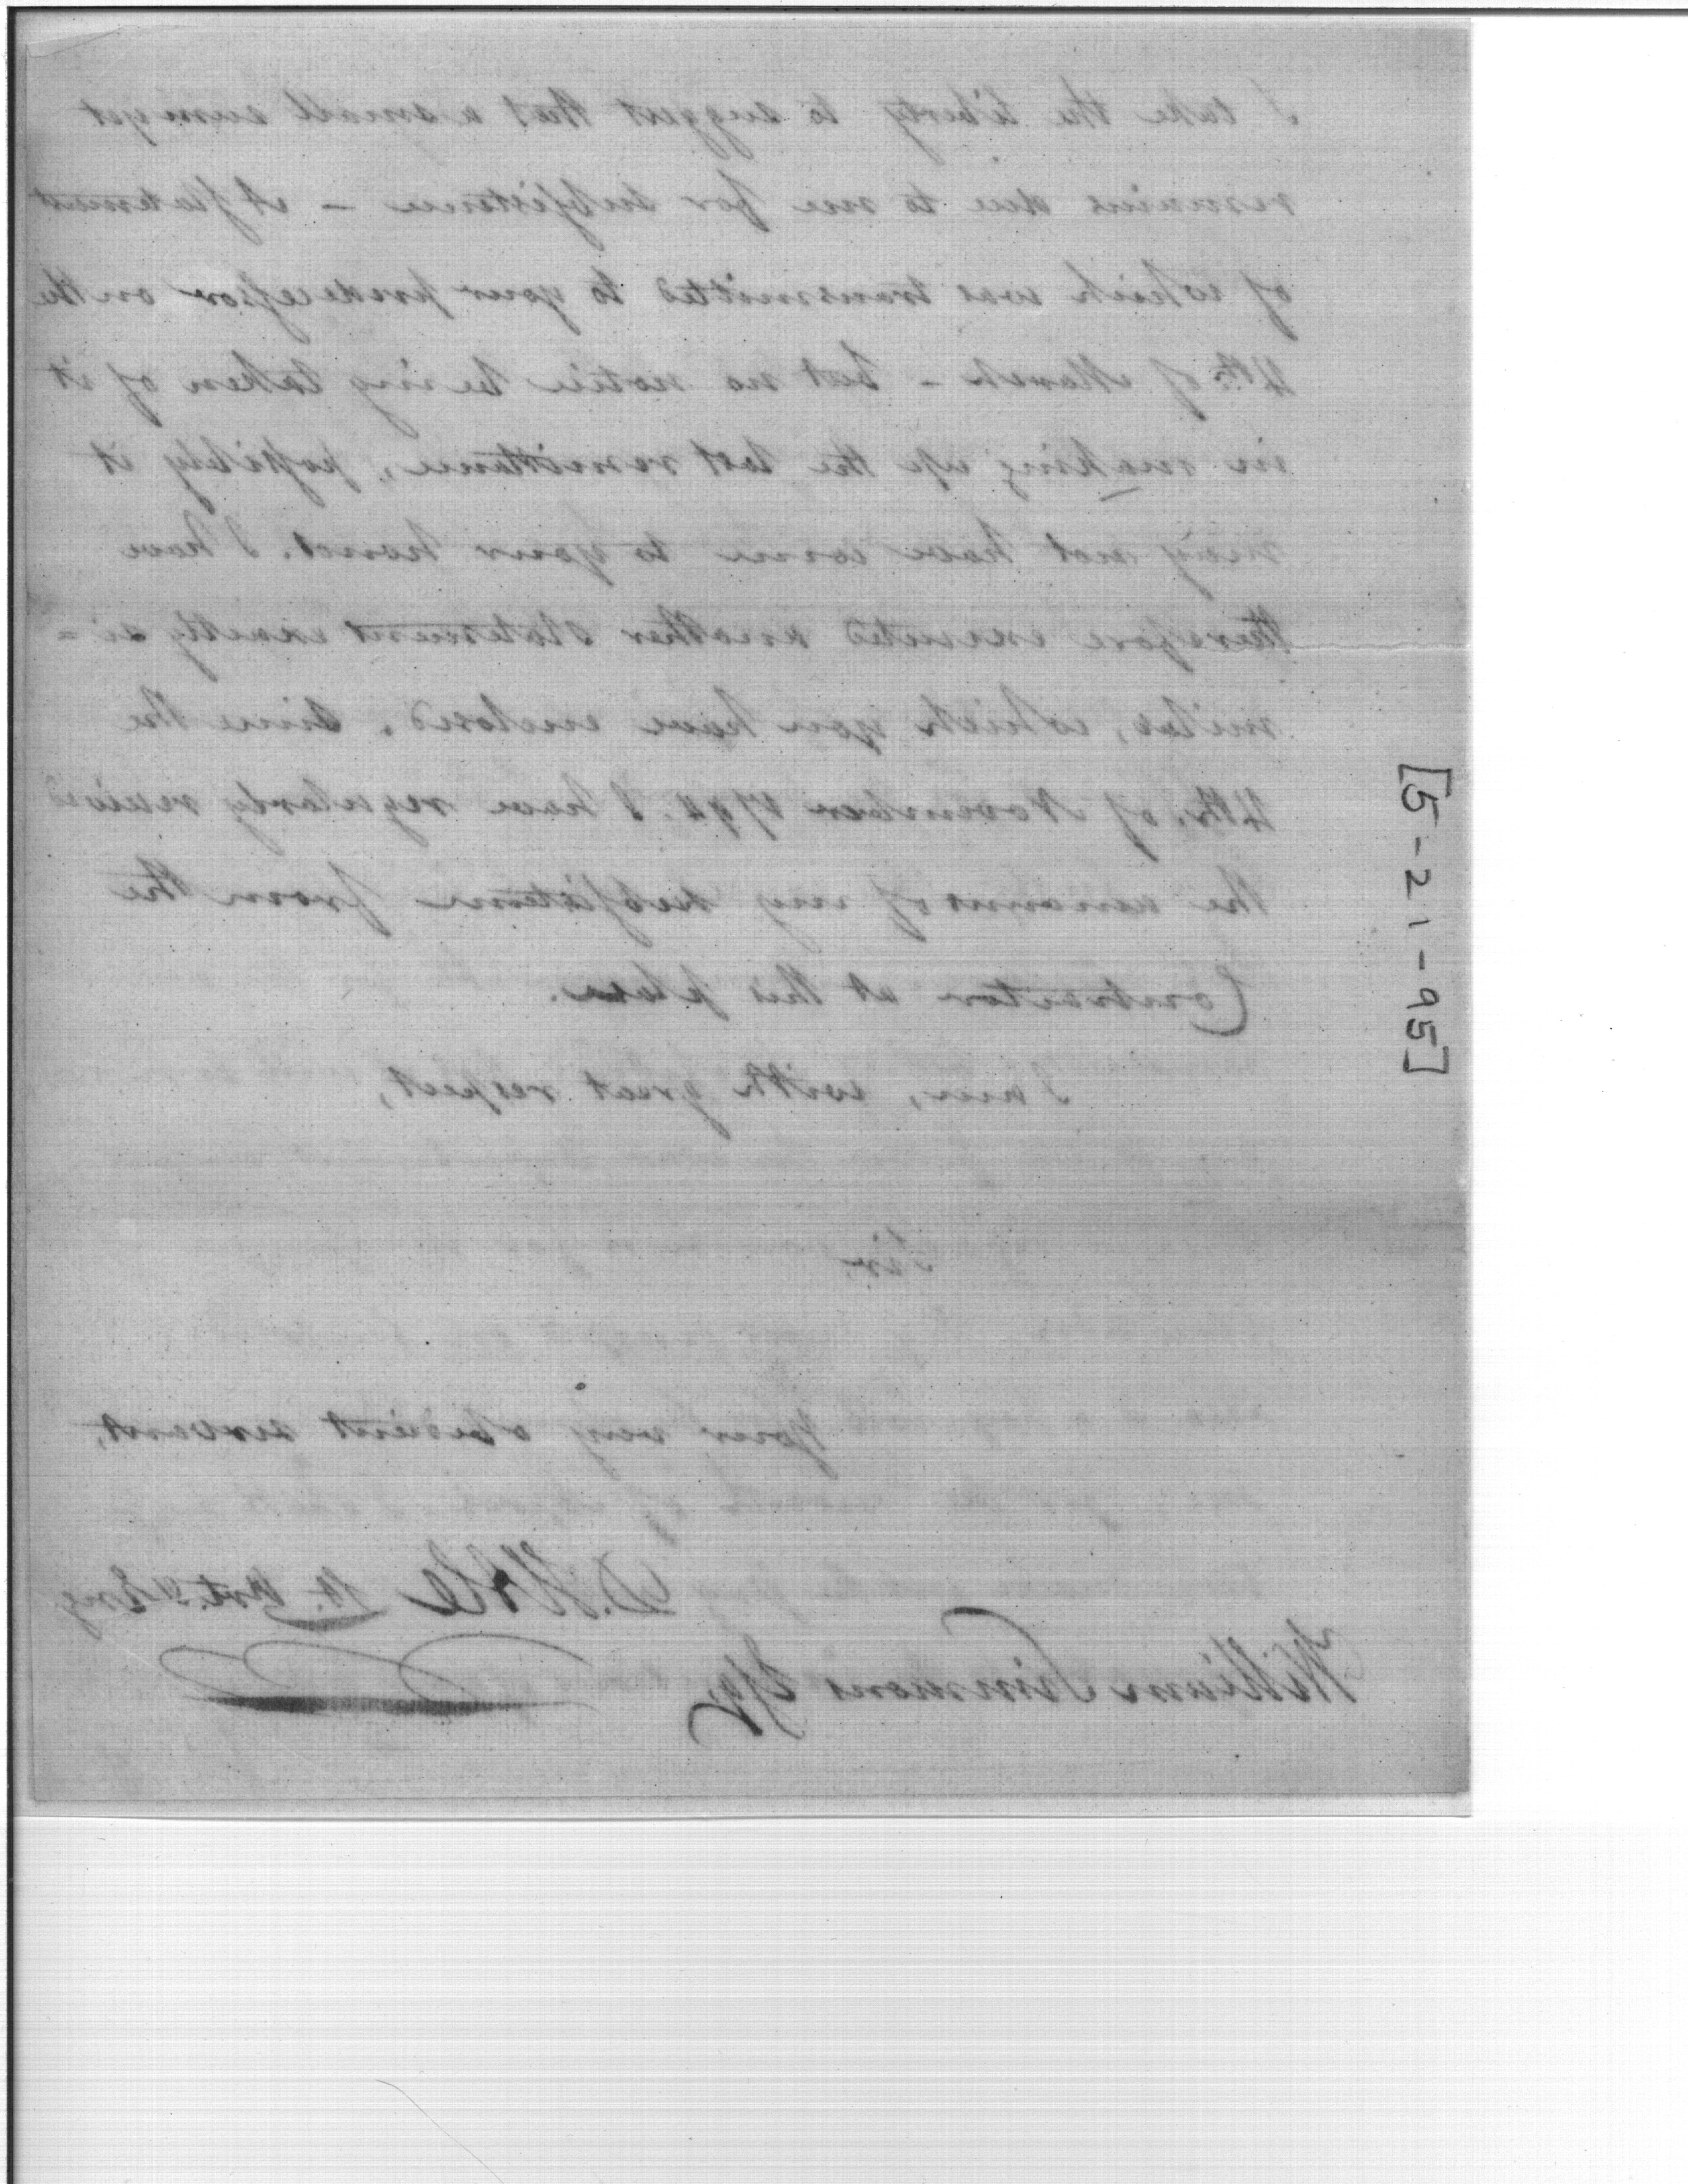 I take the liberty to suggest that a small sum yet
remains due to me for subsistence - A statement
of which was transmitted to your predecessor on the
4th. of March - but no notice being taken of it
in making up the last remittance, possibly it
may not have come to your hands. I have
therefore executed another statement exactly si-
milar, which you have inclosed. Since the
4th. of November 1794. I have regularly received
the amount of my subsistence from the
Contractor at this place.
I am, with great respect,
Sir
Your very obedient servant,
William Simmons Esq.
[5-21-95]